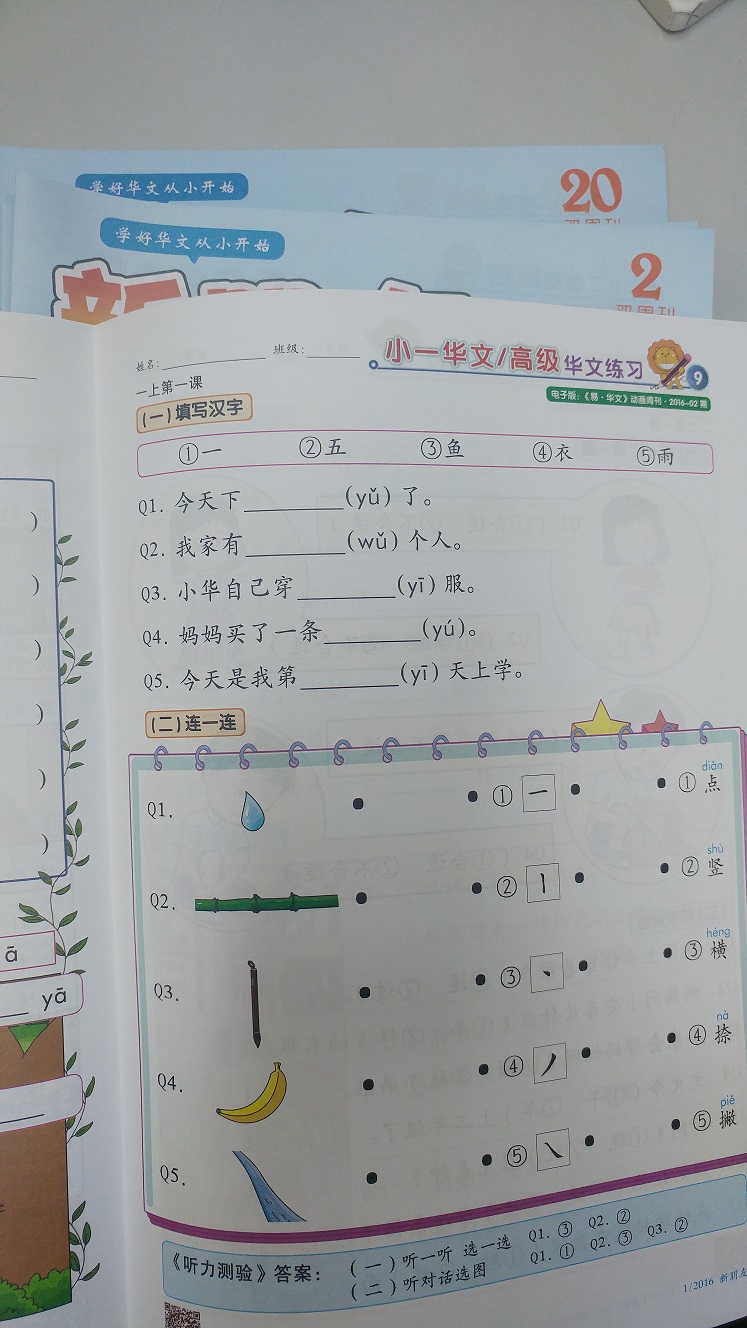 学好华文从小开始
20
学好华文从小开始
2
姓名：________ 班级：________
小一华文/高级华文练习
9
电子版：《易·华文》动画周刊·2016-02期
一上第一课
(一)填写汉字
①一 ②五 ③鱼 ④衣 ⑤雨
Q1. 今天下________(yǔ)了。
Q2. 我家有________(wǔ)个人。
Q3. 小华自己穿________(yī)服。
Q4. 妈妈买了一条________(yú)。
Q5. 今天是我第________(yī)天上学。
(二)连一连
diǎn
Q1. ① 一 ① 点
shù
Q2. ② 丨 ② 竖
héng
Q3. ③ 丶 ③ 横
nà
Q4. ④ 丿 ④ 捺
piě
Q5. ⑤ ㇏ ⑤ 撇
)
)
)
)
)
)
ā
yā
《听力测验》答案：
(一)听一听 选一选 Q1. ③ Q2. ②
(二)听对话选图 Q1. ① Q2. ③ Q3. ②
1/2016 新朋友